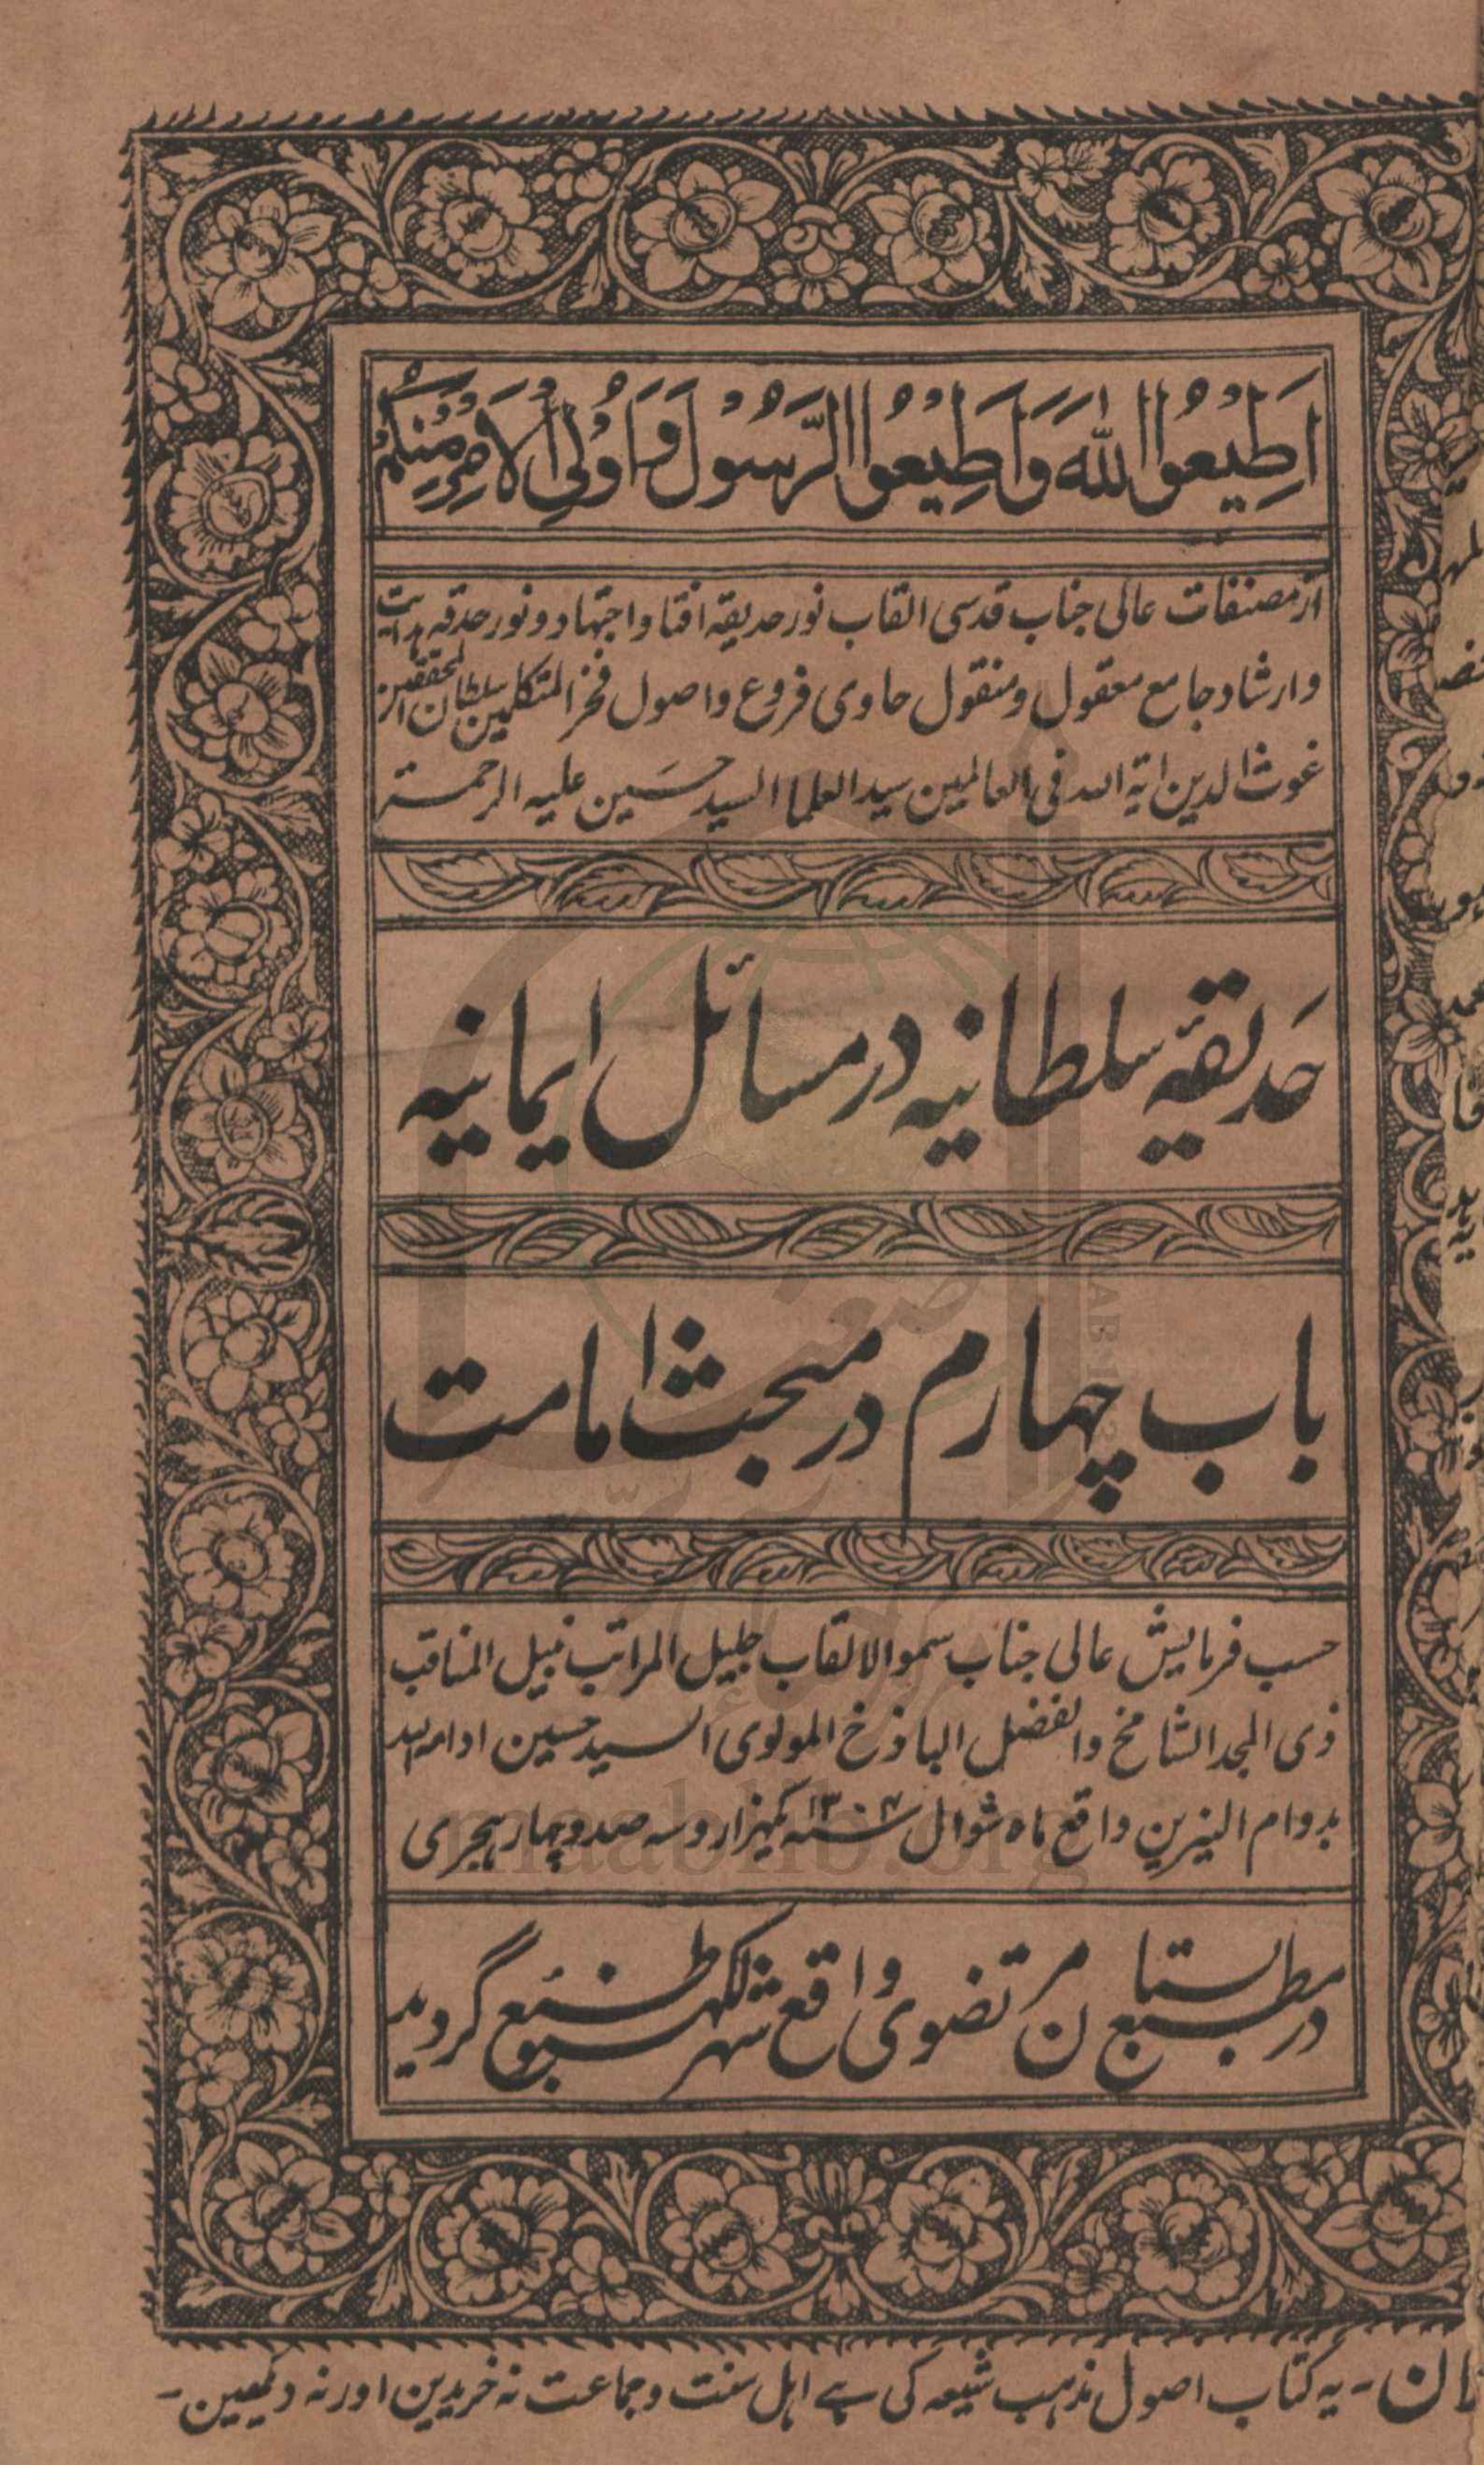 اَطِیْعُوا اللهَ وَاَطِیْعُوا الرَّسُوْلَ وَاُولِی الْاَمْرِ مِنْكُمْ
از مصنفات عالی جناب قدسی القاب نور حدیقه افتا و اجتهاد و نور حدقه هدایت
و ارشاد جامع معقول و منقول حاوی فروع و اصول فخر المتکلمین سلطان المحققین
غوث الدین ایة الله فی العالمین سید العلما السید حسین علیه الرحمة
حدیقۂ سلطانیه در مسائل ایمانیه
باب چهارم در مبحث امامت
حسب فرمایش عالی جناب سموالالقاب جلیل المراتب نبیل المناقب
ذی المجد الشامخ والفضل الباذخ المولوی السید حسین ادامه الله
بدوام النیرین واقع ماه شوال سنه ۱۳۰۴ یکهزار و سه صد و چهار هجری
در مطبع بستان مرتضوی واقع شهر لکهنو طبع گردید
ان - یہ کتاب اصول مذہب شیعہ کی ہے اہل سنت وجماعت نہ خریدین اور نہ دیکھین -
maablib.org